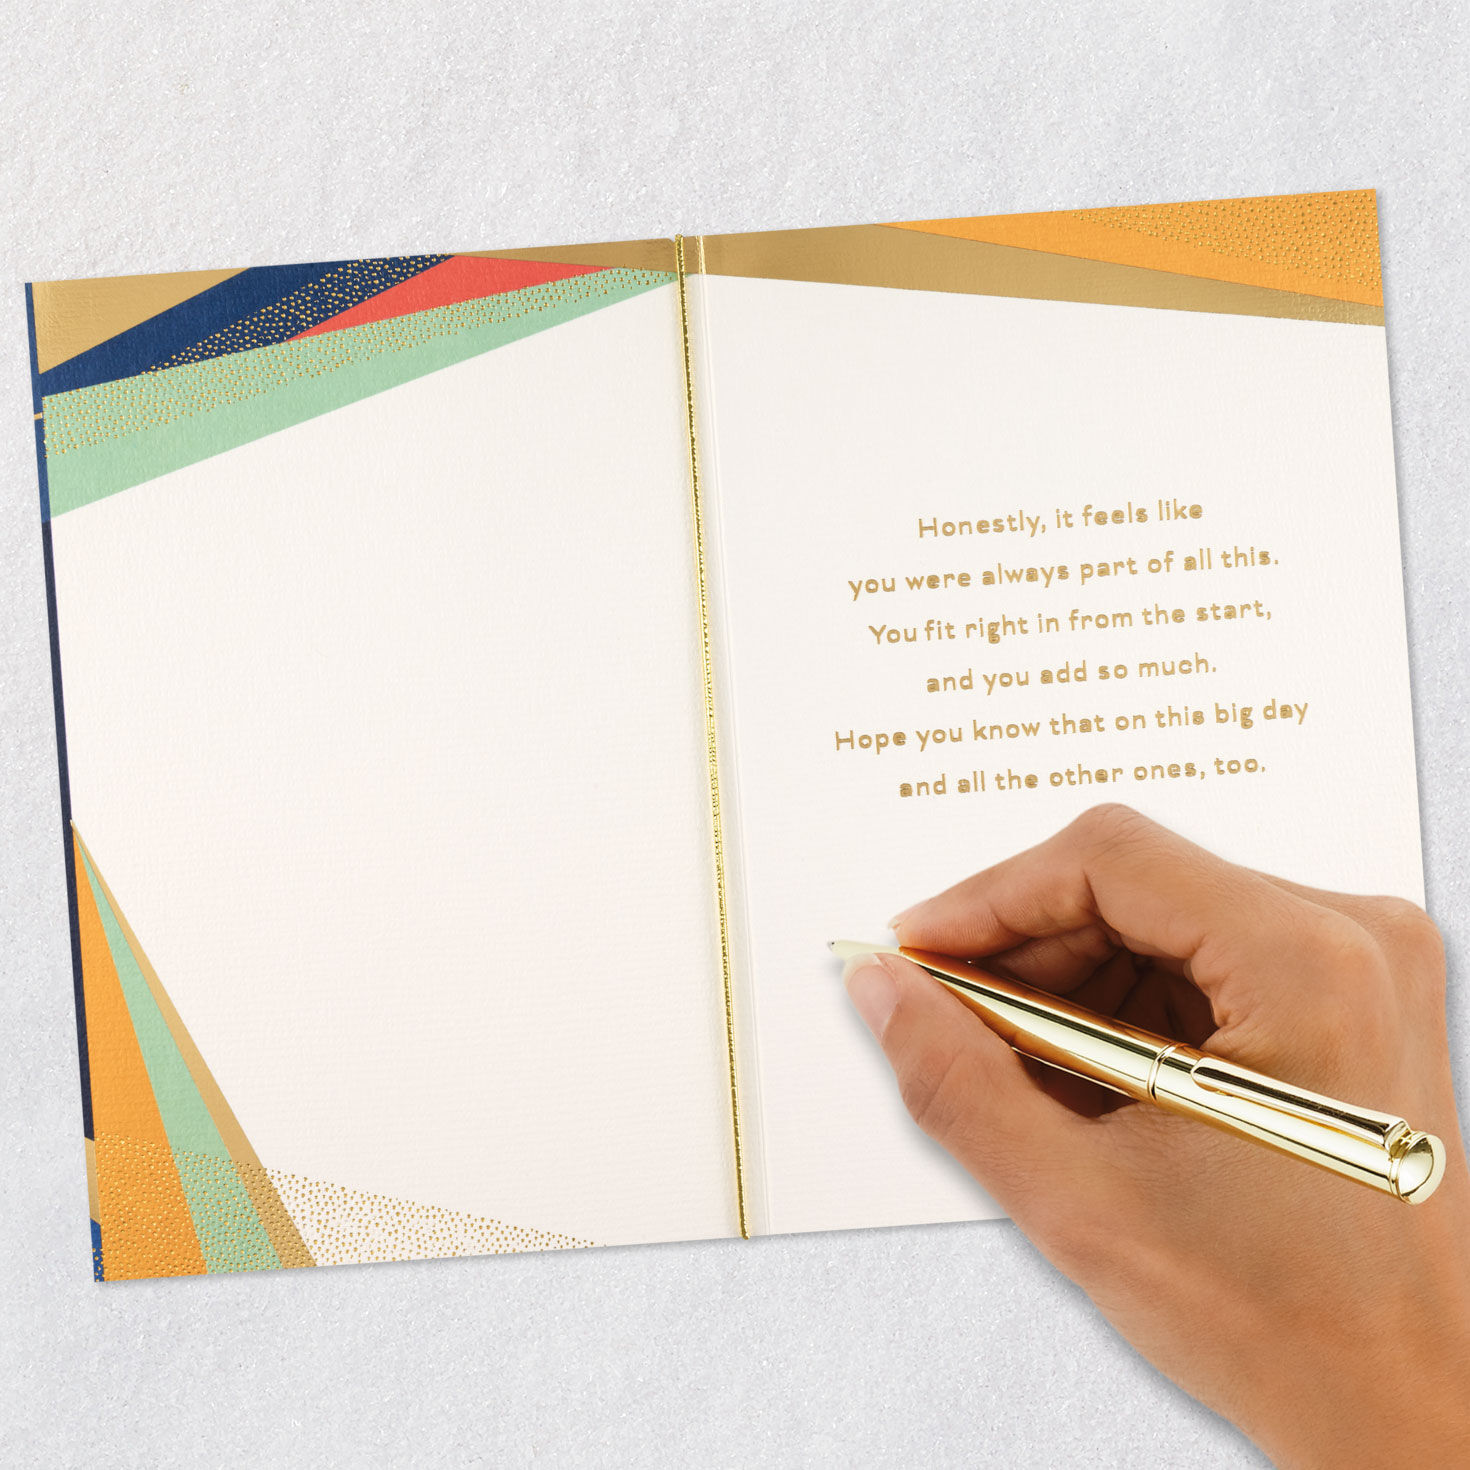 Honestly, it feels like
you were always part of all this.
You fit right in from the start,
and you add so much.
Hope you know that on this big day
and all the other ones, too.